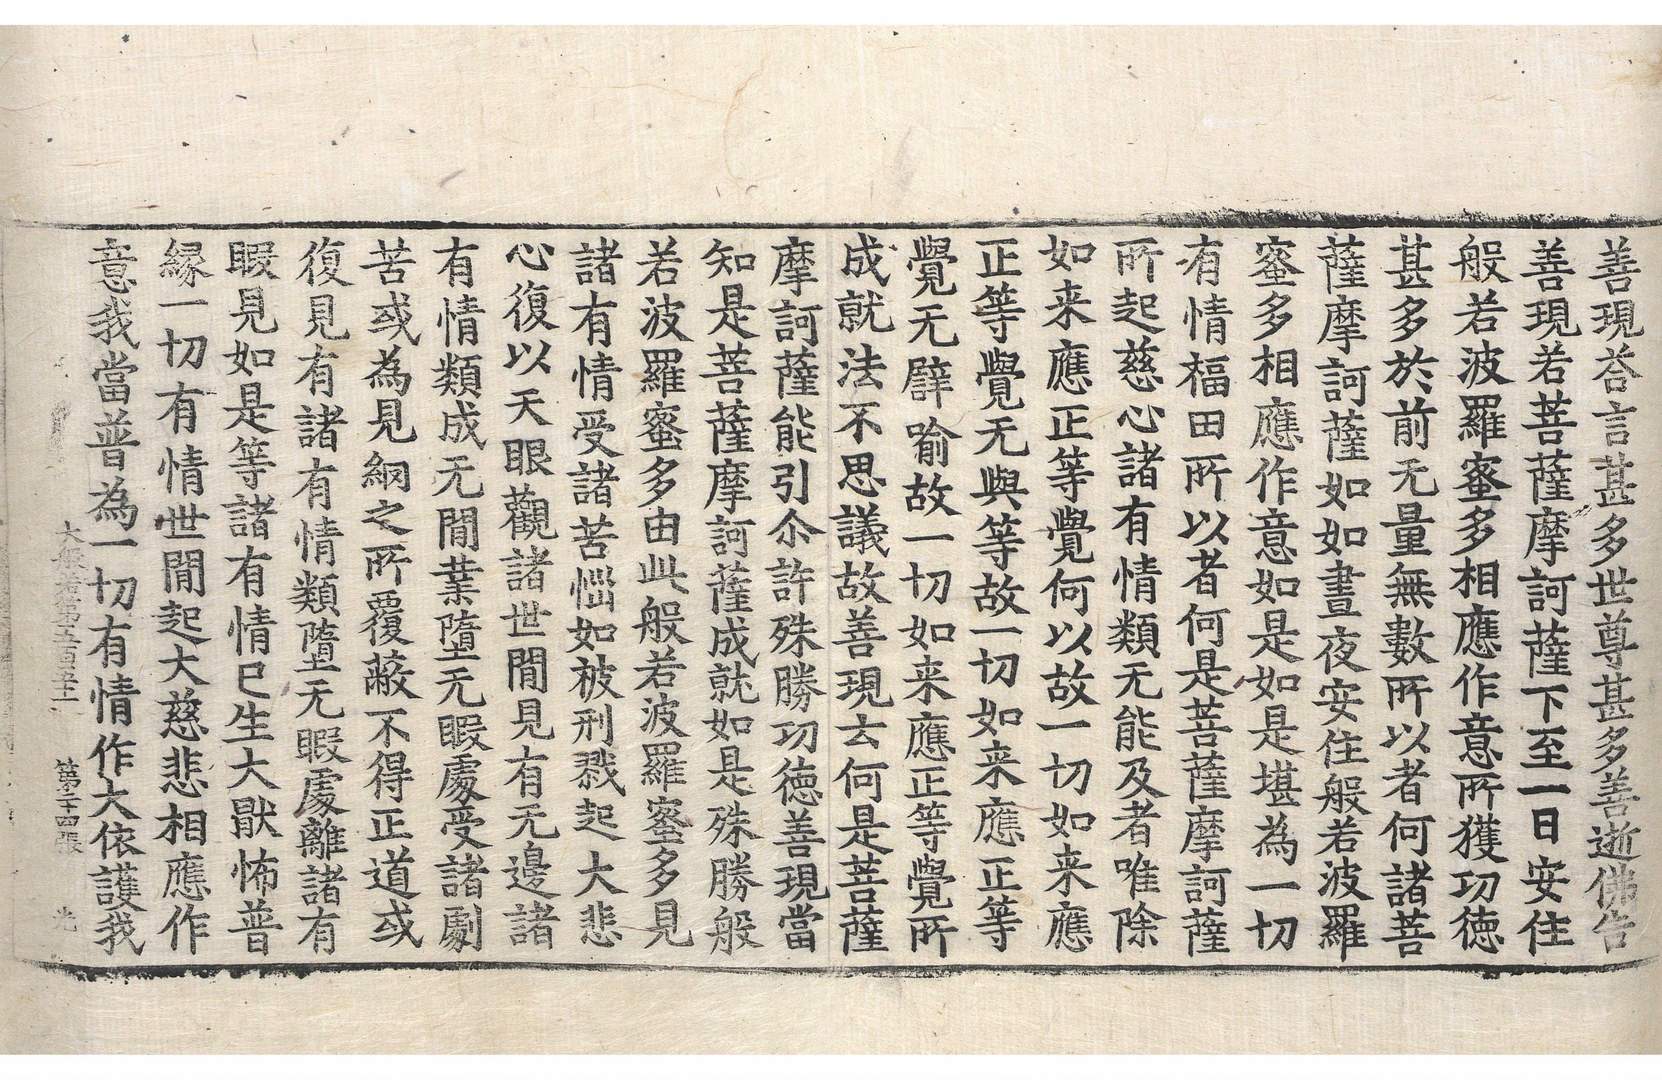 善現荅言甚多世尊甚多善逝佛告
善現若菩薩摩訶薩下至一日安住
般若波羅蜜多相應作意所獲功徳
甚多於前无量無數所以者何諸菩
薩摩訶薩如如晝夜安住般若波羅
蜜多相應作意如是如是堪為一切
有情福田所以者何是菩薩摩訶薩
所起慈心諸有情類无能及者唯除
如来應正等覺何以故一切如来應
正等覺无與等故一切如来應正等
覺无譬喻故一切如来應正等覺所
成就法不思議故善現云何是菩薩
摩訶薩能引尒許殊勝功徳善現當
知是菩薩摩訶薩成就如是殊勝般
若波羅蜜多由此般若波羅蜜多見
諸有情受諸苦惱如被刑戮起大悲
心復以天眼觀諸世間見有无邊諸
有情類成无間業墮无暇處受諸劇
苦或為見網之所覆蔽不得正道或
復見有諸有情類墮无暇處離諸有
暇見如是等諸有情已生大猒怖普
緣一切有情世間起大慈悲相應作
意我當普為一切有情作大依護我
大般若第五百五十 第二十四張 光